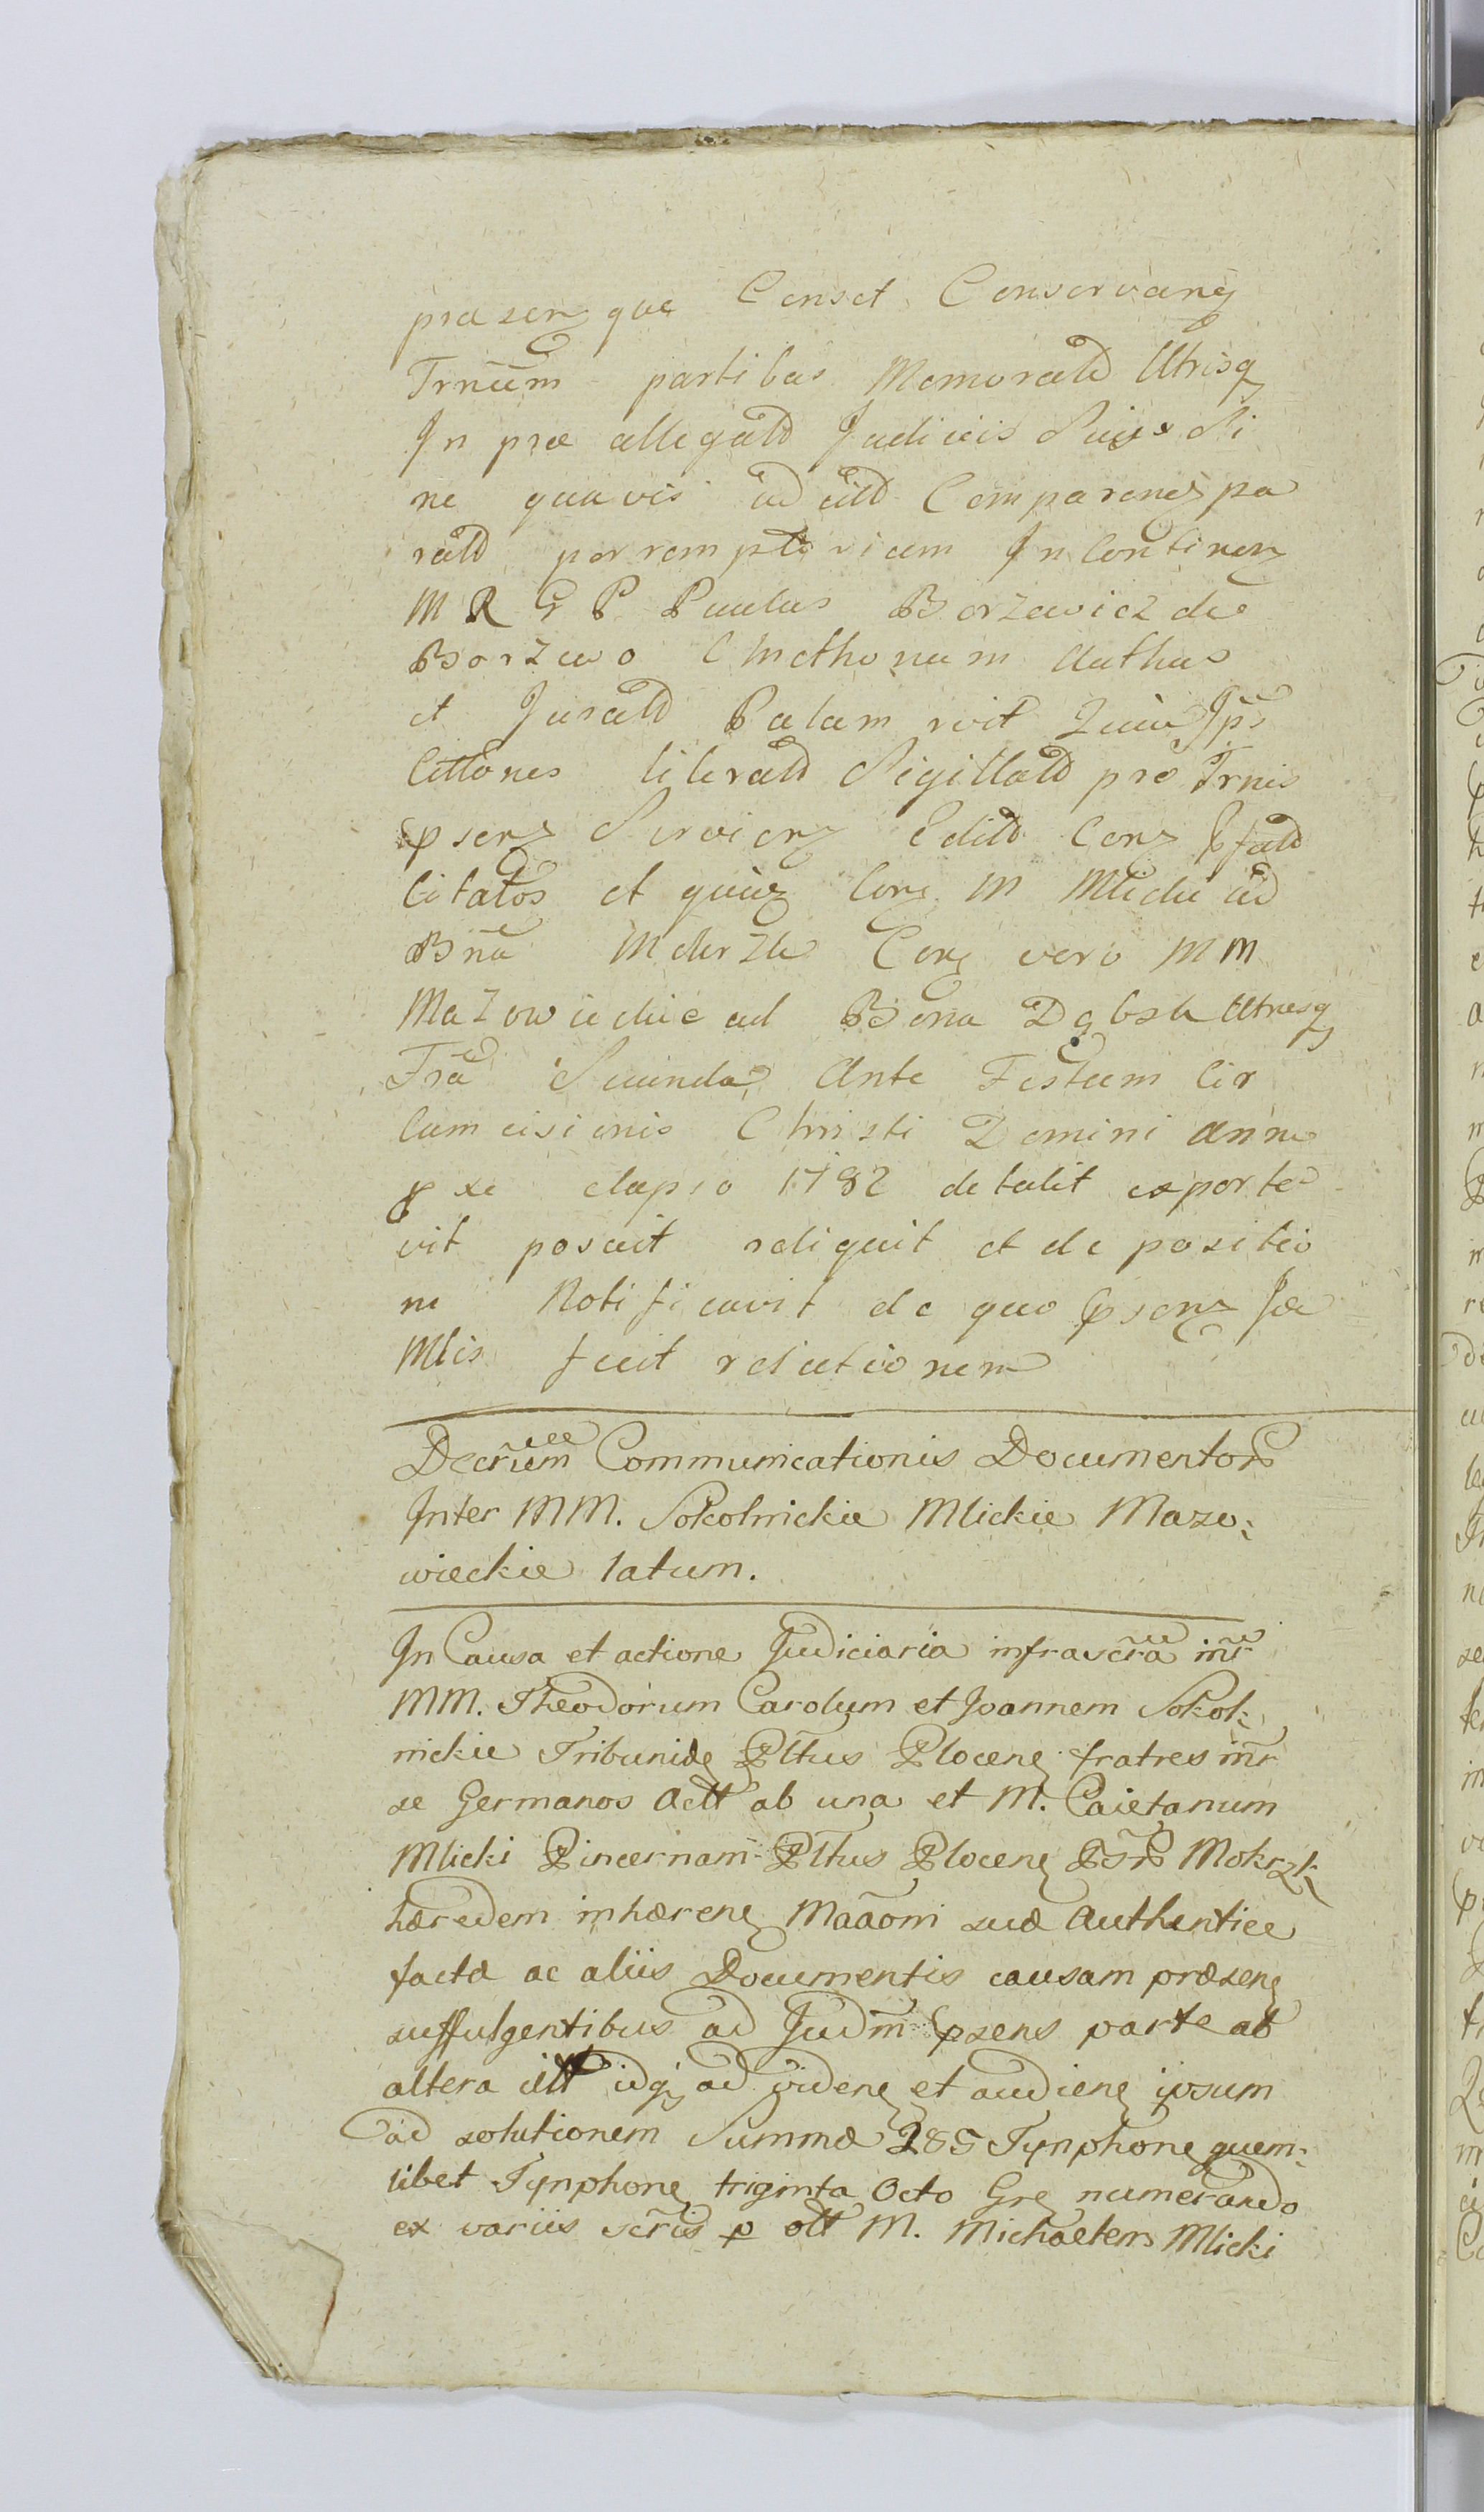 præsen que Censet Conservang
Trnum partibus Memorald Utrisq
In præ allegatd Judiciis Suis Si
ne quavis ad Compareng pa
ratd perremptoriam In Continen
M R G P Paulus Borzewicz de
Borzewo Cmethonum Authus
et Juratd Palam
literatd Sigillatd pro Trnis
psenz Servienz Editd Cenz
Citatos et Cong M Mlicki ad
Bna Cong vero M M
Mazowieckie ad Bona Utrasq
Fra Secunda Ante Festum Cir
Cumcisionis Christi Domini Anno
pxe elapso 1782 detulit exporta
vit posuit reliquit et de positio
ne Notificavit de quo psenz Jœ
Mlis fecit relationem
Decrum Communicationis Documentor
Inter MM. Sokolnickie Mlickie Mazo:
wieckie latum.
In Causa et actione Judiciaria infrascra inr
MM. Theodorum Carolum et Joannem Sokol:
nickie Tribunide Pltus Ploceng fratres inr
se Germanos Actt ab una et M. Caietanum
Mlicki Pincernam Pltus Ploceng Mokrzk
hæredem inhæreng Maaoni suæ Authentice
factæ ac aliis Documentis causam præseng
suffulgentibus ad Judm psens parte ab
altera idq; ad videng et audieng ipsum
ad solutionem Summæ 285 Tynphong quem:
libet Tynphong triginta Octo Grg numerando
ex variis scris p olt M. Michaelem Mlicki